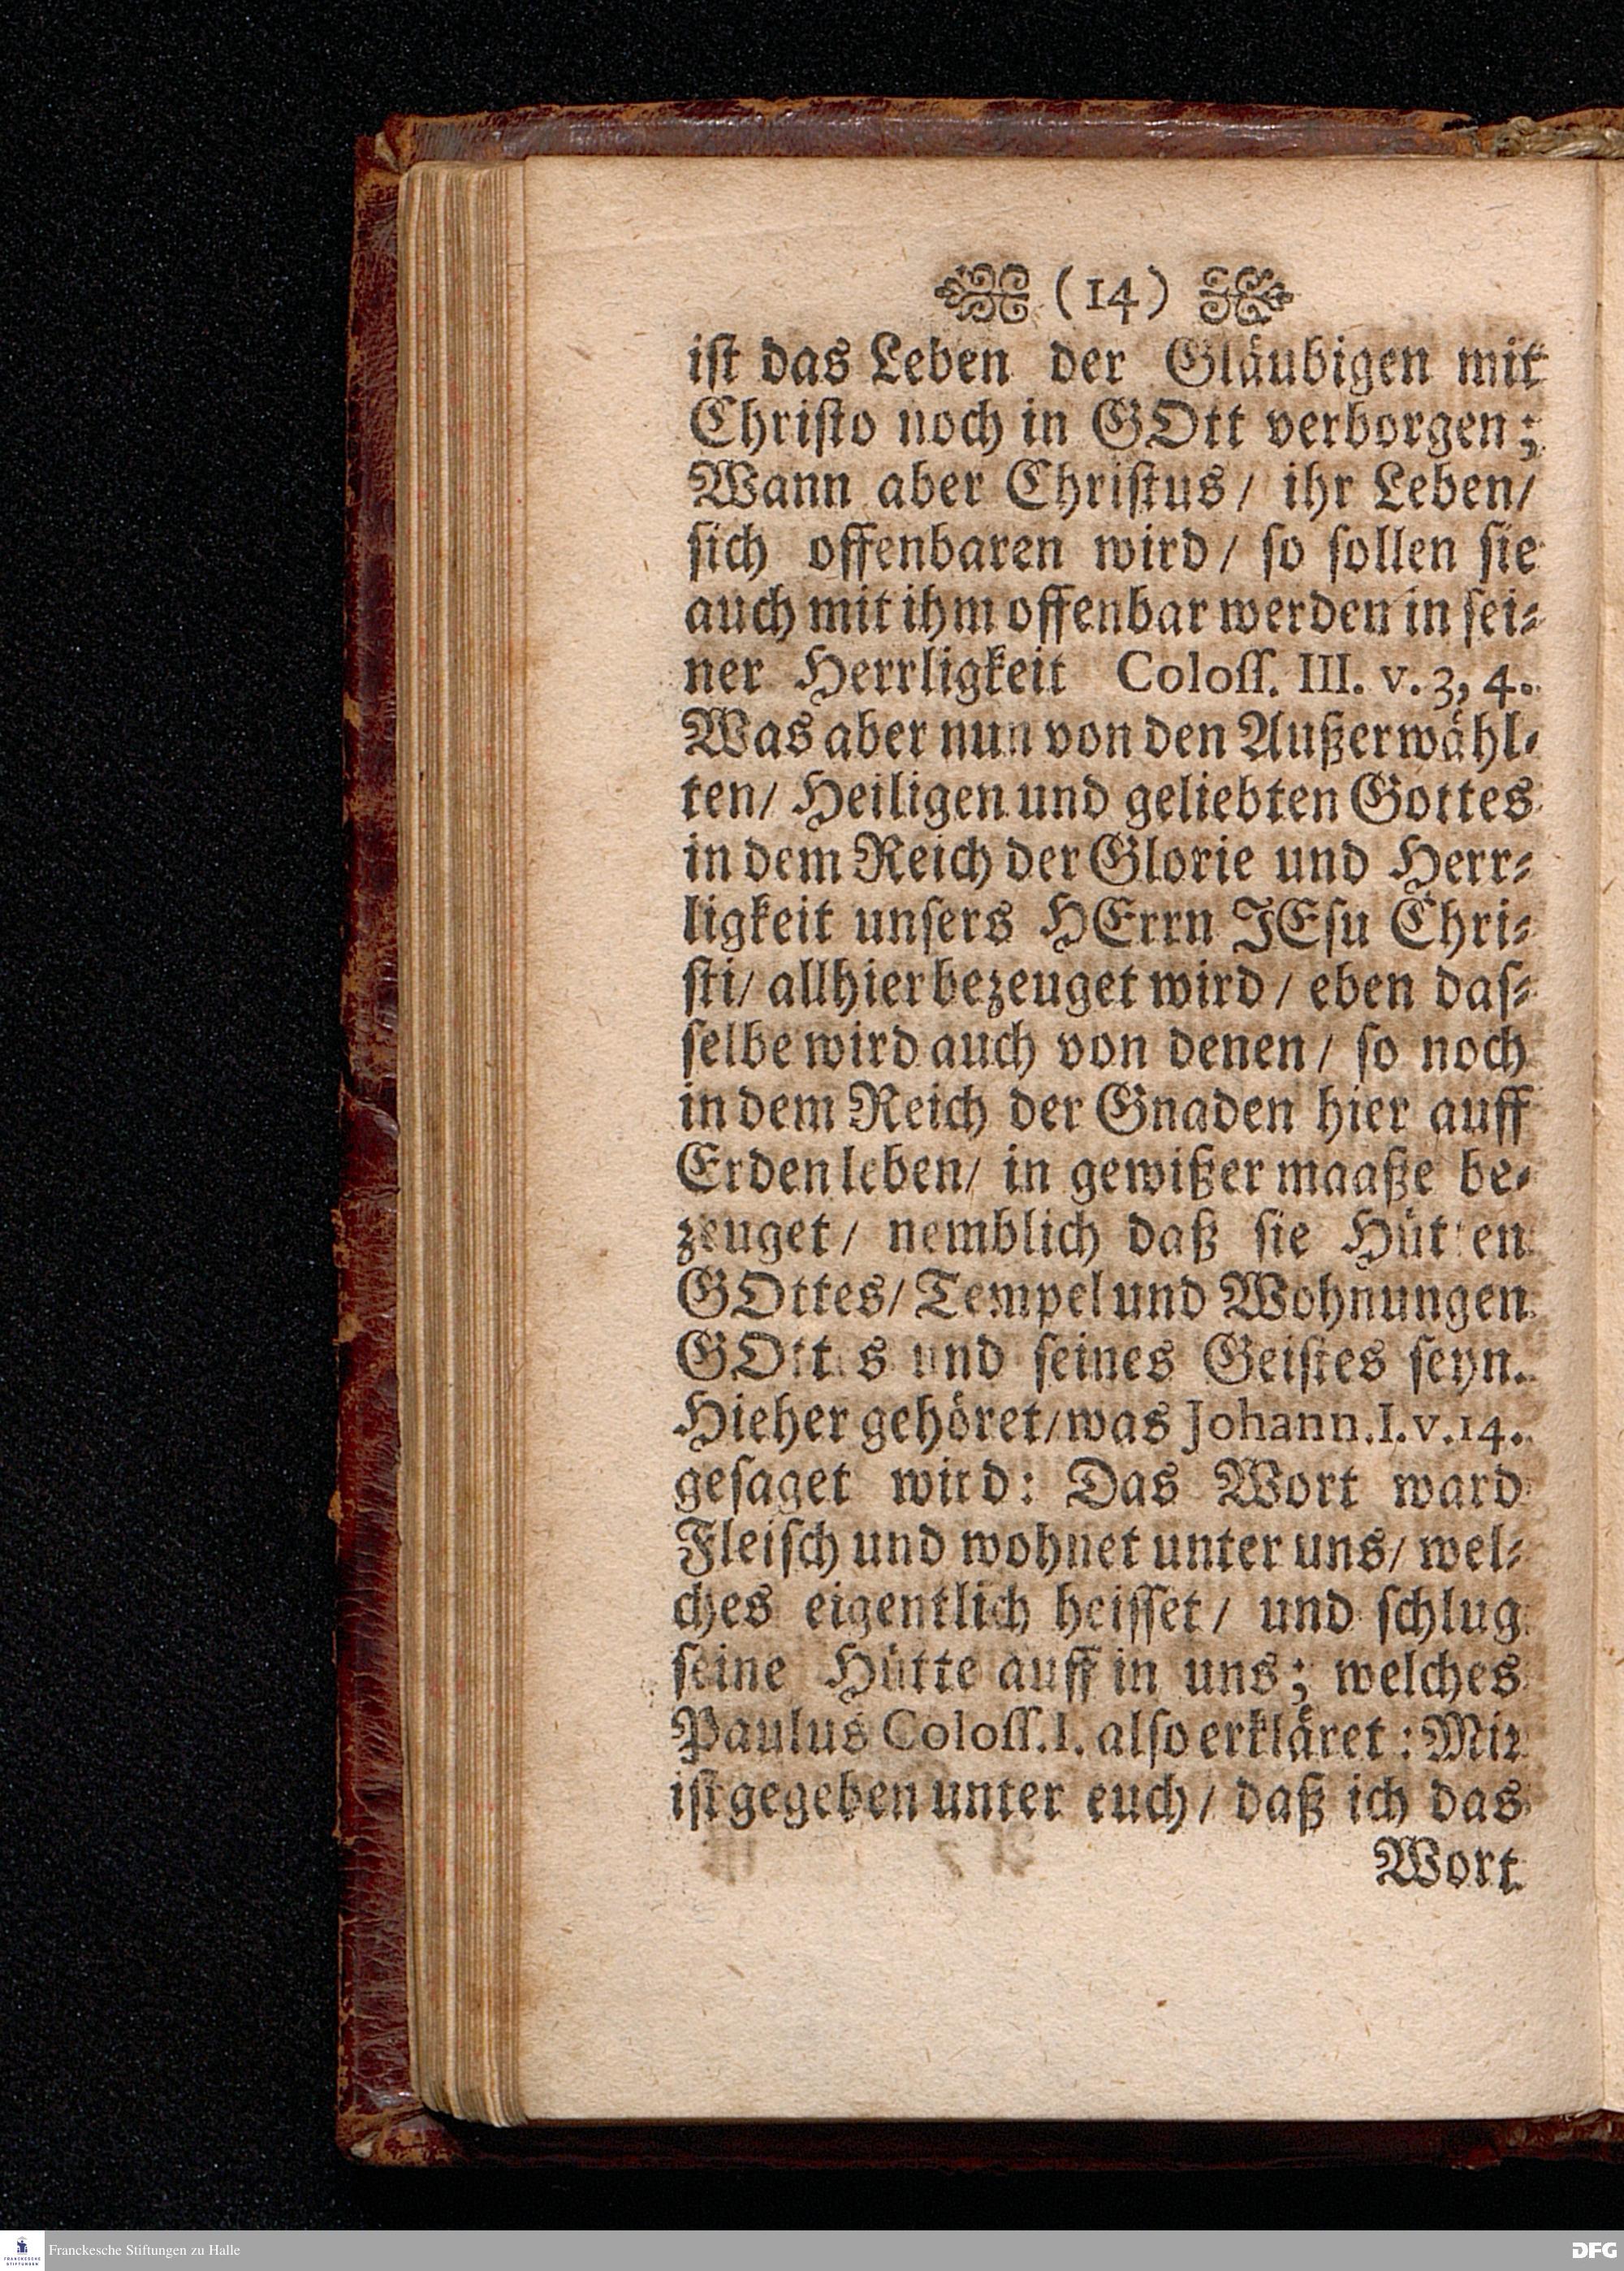 (14)
iſt das Leben der Gläubigen mit
Chriſto noch in GOtt verborgen;
Wann aber Chriſtus/ ihr Leben/
ſich offenbaren wird/ ſo ſollen ſie
auch mit ihm offenbar werden in ſei-
ner Herrligkeit Coloſſ. III. v. 3, 4.
Was aber nun von den Außerwähl-
ten/ Heiligen und geliebten Gottes
in dem Reich der Glorie und Herr-
ligkeit unſers HErrn JEſu Chri-
ſti/ allhier bezeuget wird/ eben daſ-
ſelbe wird auch von denen/ ſo noch
in dem Reich der Gnaden hier auff
Erden leben/ in gewißer maaße be-
zeuget/ nemblich daß ſie Hütten
GOttes/ Tempel und Wohnungen
GOttes und ſeines Geiſtes ſeyn.
Hieher gehöret/ was Johann. I. v. 14.
geſaget wird: Das Wort ward
Fleiſch und wohnet unter uns/ wel-
ches eigentlich heiſſet/ und ſchlug
ſeine Hütte auff in uns; welches
Paulus Coloſſ. I. alſo erkläret: Mir
iſt gegeben unter euch/ daß ich das
Wort
Franckesche Stiftungen zu Halle
FRANCKESCHE STIFTUNGEN
DFG